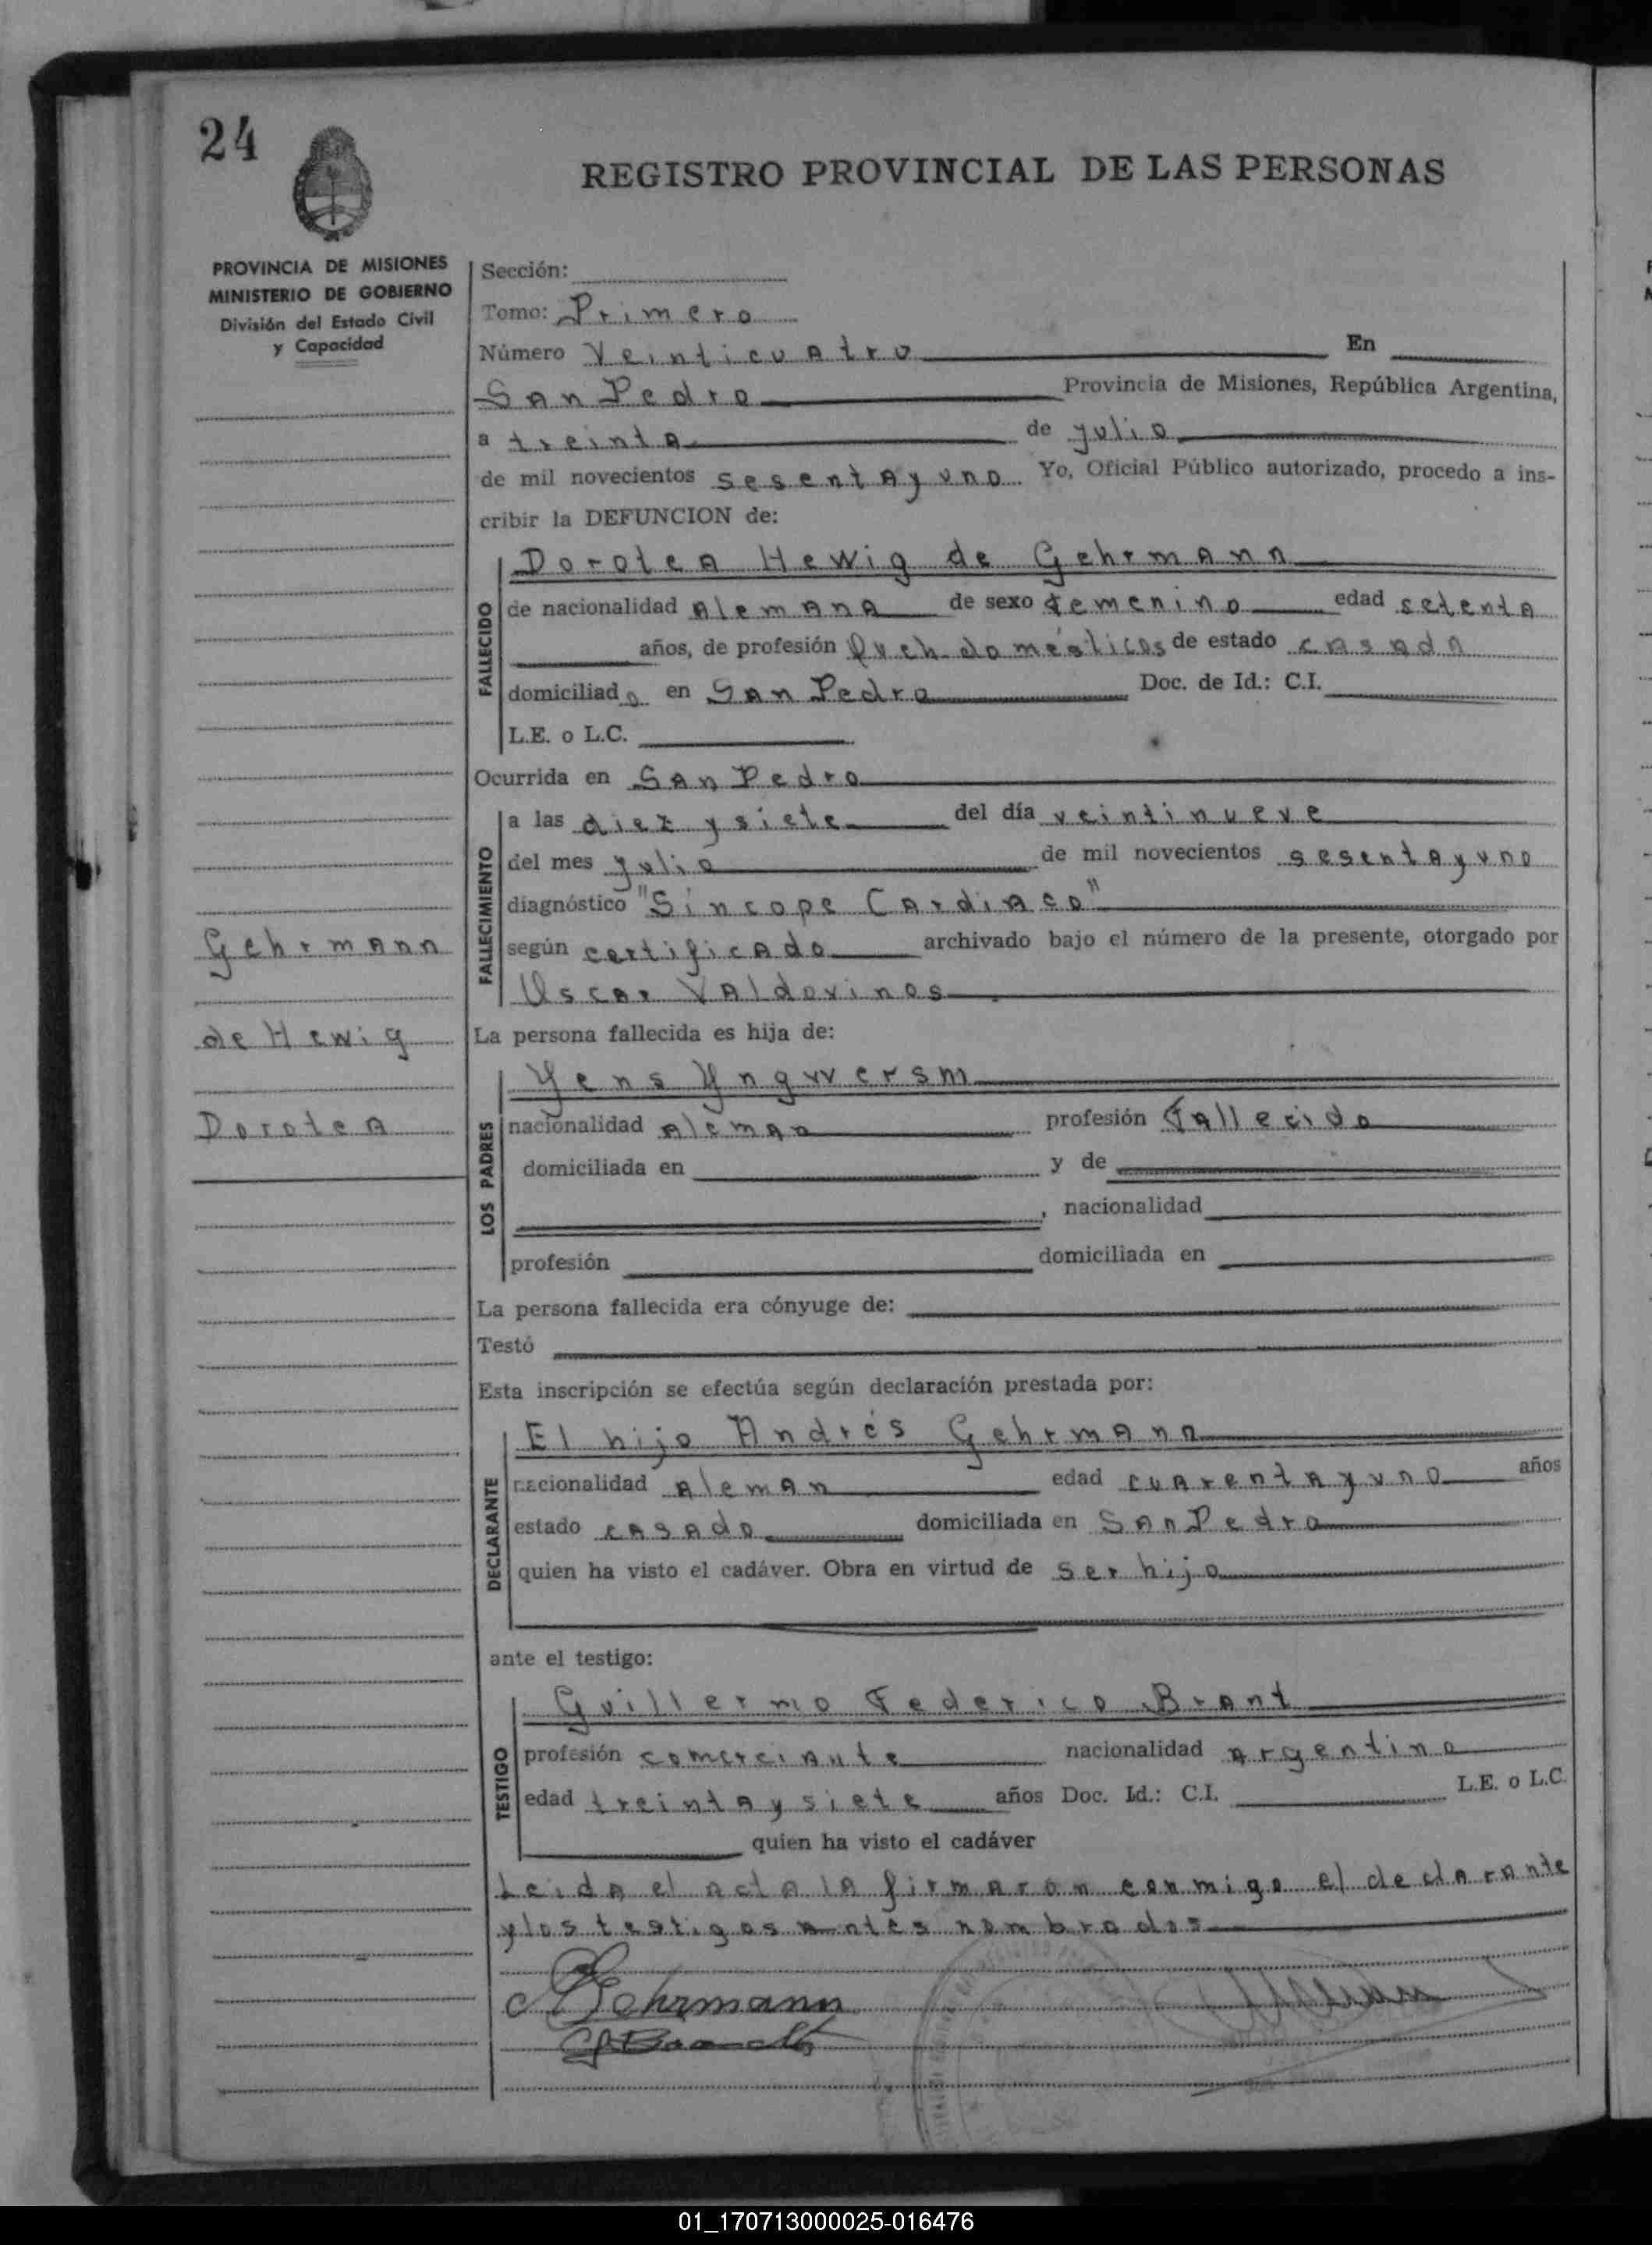 24
REGISTRO PROVINCIAL DE LAS PERSONAS
PROVINCIA DE MISIONES
MINISTERIO DE GOBIERNO
División del Estado Civil
y Capacidad
Gehrmann
de Hewig
Dorotea
Sección:
Tomo: Primero
Número Veinticuatro En
San Pedro Provincia de Misiones, República Argentina,
a treinta de julio
de mil novecientos sesenta y uno Yo, Oficial Público autorizado, procedo a ins-
cribir la DEFUNCION de:
FALLECIDO
Dorotea Hewig de Gehrmann
de nacionalidad Alemana de sexo femenino edad setenta
años, de profesión Queh. domésticos de estado casada
domiciliado en San Pedro Doc. de Id.: C.I.
L.E. o L.C.
Ocurrida en San Pedro
FALLECIMIENTO
a las diez y siete del día veintinueve
del mes julio de mil novecientos sesenta y uno
diagnóstico "Síncope Cardiaco"
según certificado archivado bajo el número de la presente, otorgado por
Oscar Valdovinos
La persona fallecida es hija de:
LOS PADRES
Yens Yngwersm
nacionalidad Aleman profesión Fallecido
domiciliada en y de
, nacionalidad
profesión domiciliada en
La persona fallecida era cónyuge de:
Testó
Esta inscripción se efectúa según declaración prestada por:
DECLARANTE
El hijo Andrés Gehrmann
nacionalidad Aleman edad cuarenta y uno años
estado casado domiciliada en San Pedro
quien ha visto el cadáver. Obra en virtud de ser hijo
ante el testigo:
TESTIGO
Guillermo Federico Brant
profesión comerciante nacionalidad Argentino
edad treinta y siete años Doc. Id.: C.I. L.E. o L.C.
quien ha visto el cadáver
Leida el acta la firmaron conmigo el declarante
y los testigos antes nombrados
A Gehrmann
01_170713000025-016476